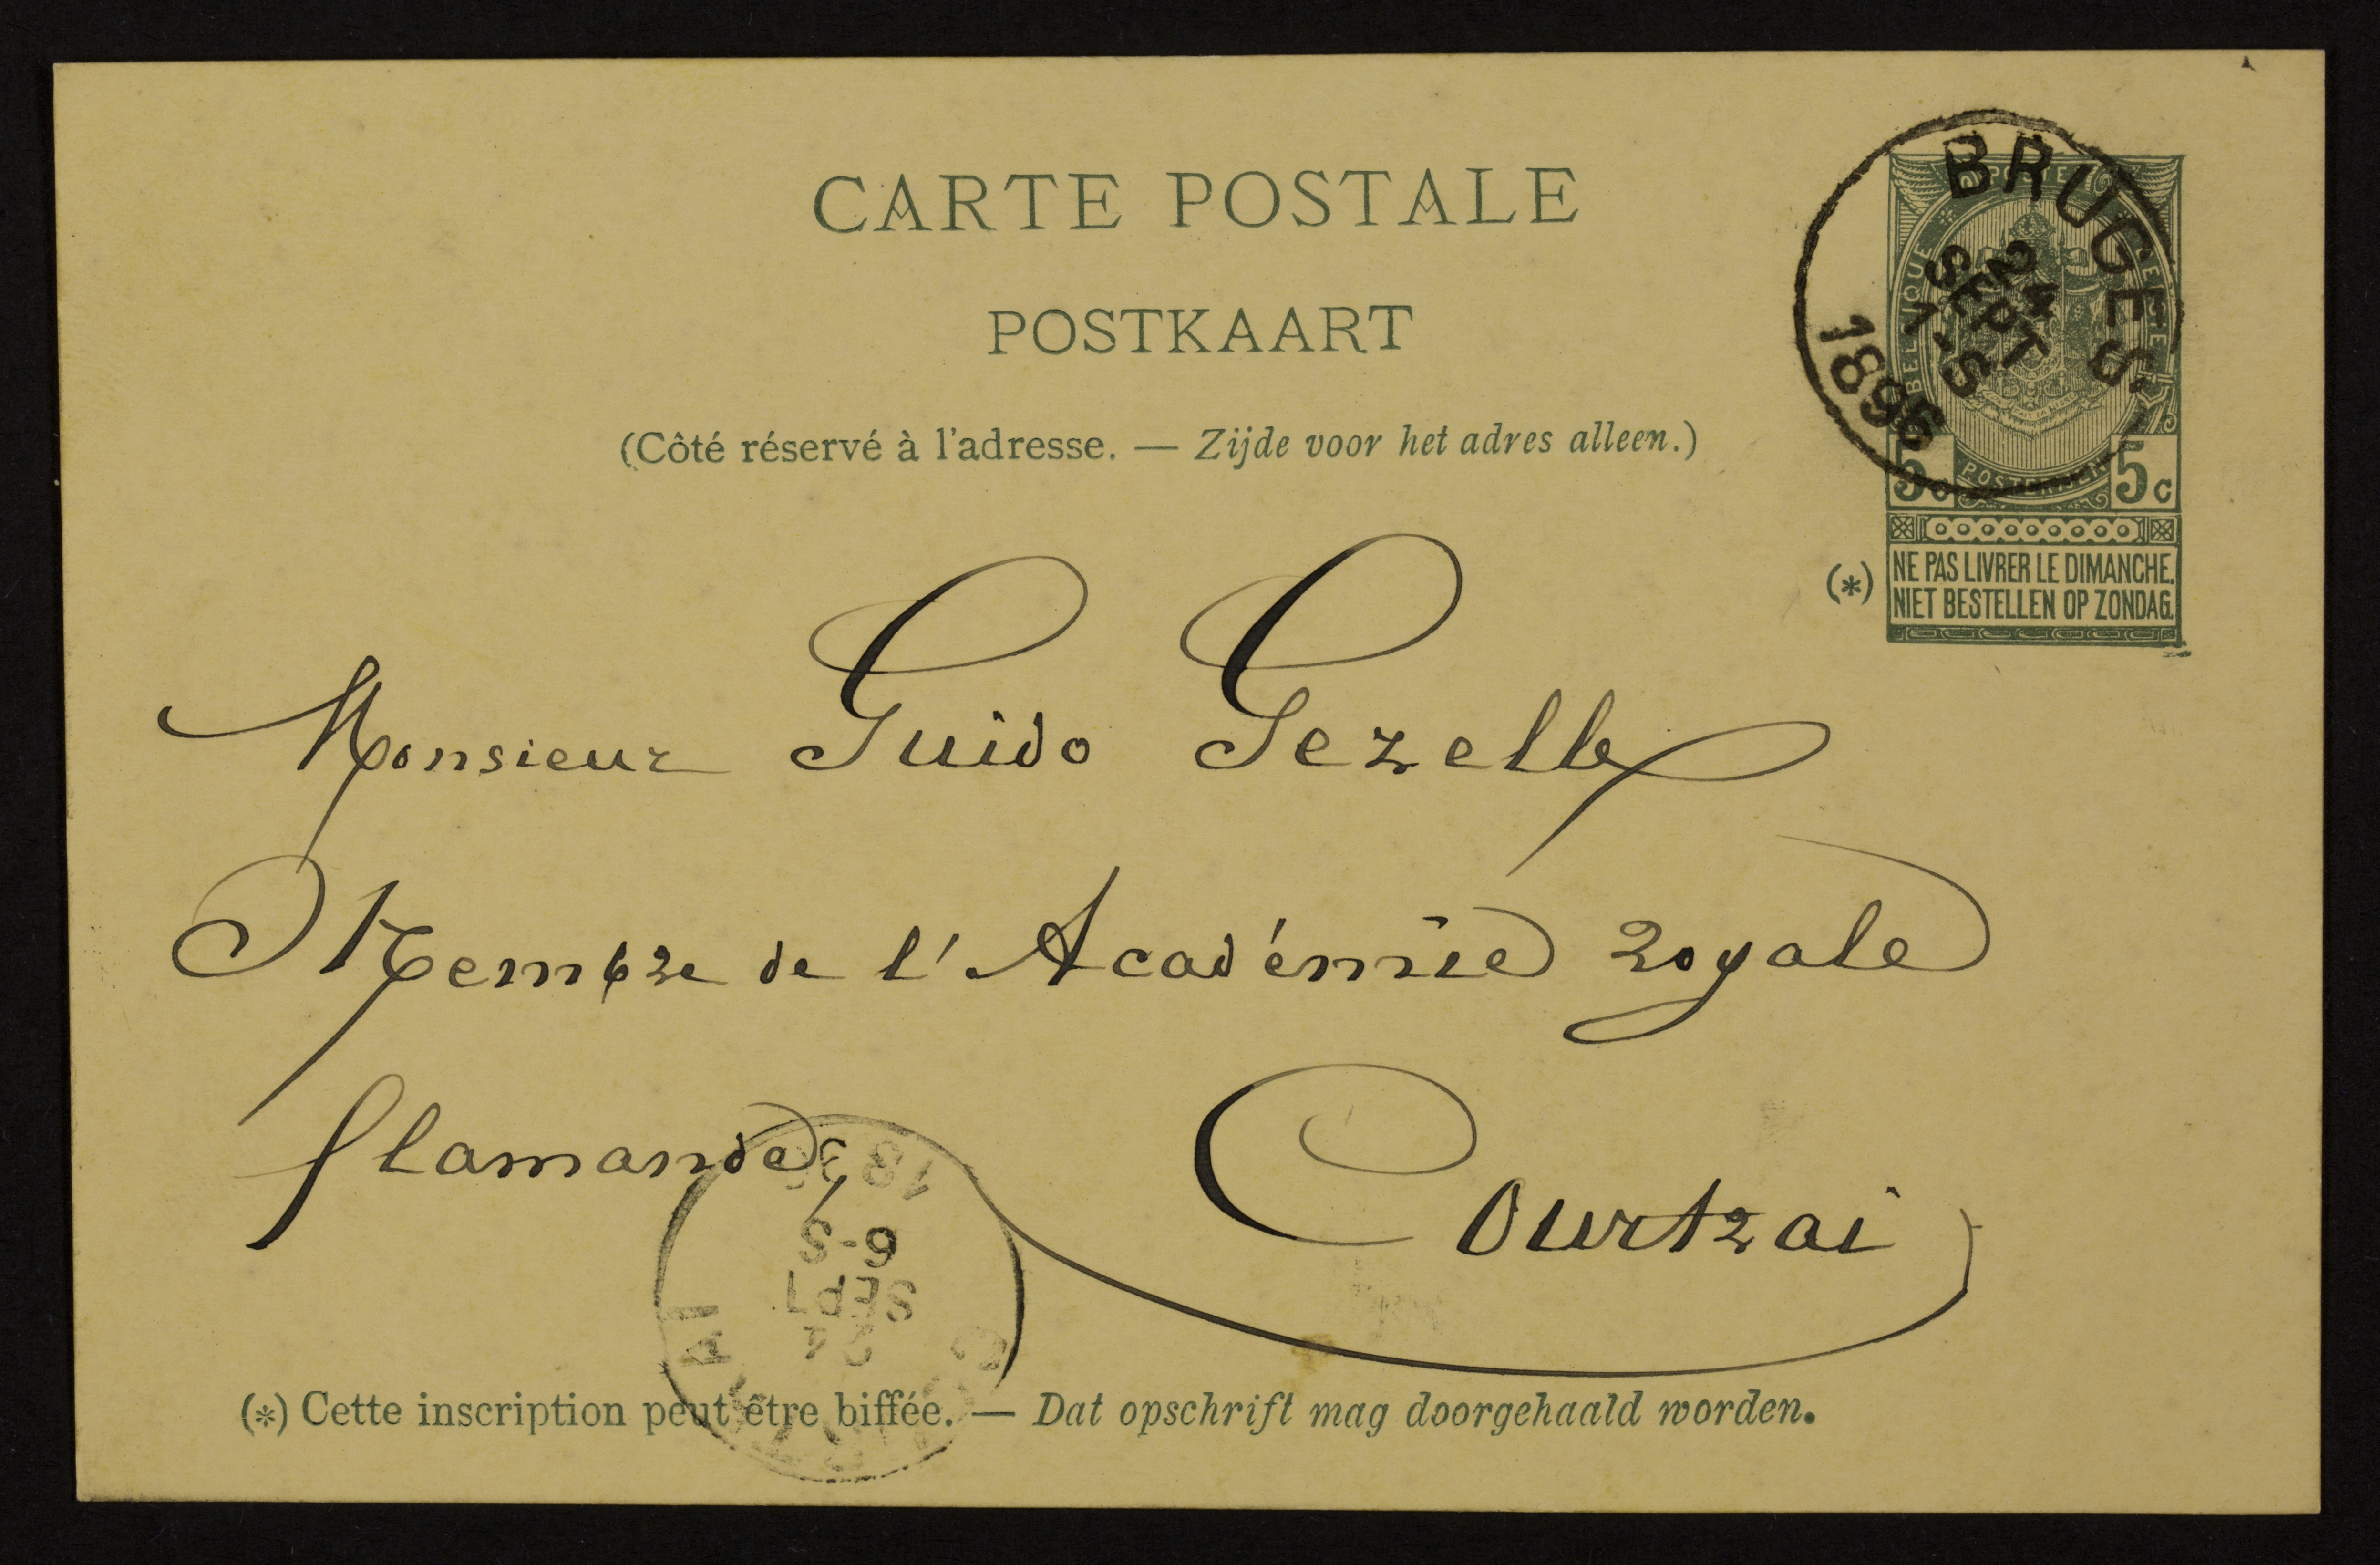 CARTE POSTALE
POSTKAART
(Côté réservé à l'adresse. — Zijde voor het adres alleen.)
BRUGES
24
SEPT
1-S
1896
BELGIQUE
5c 5c
(*) NE PAS LIVRER LE DIMANCHE.
NIET BESTELLEN OP ZONDAG.
Monsieur Guido Gezelle
Membre de l'Académie royale
flamande,
Courtrai
6-S
SEPT
24
(*) Cette inscription peut être biffée. — Dat opschrift mag doorgehaald worden.